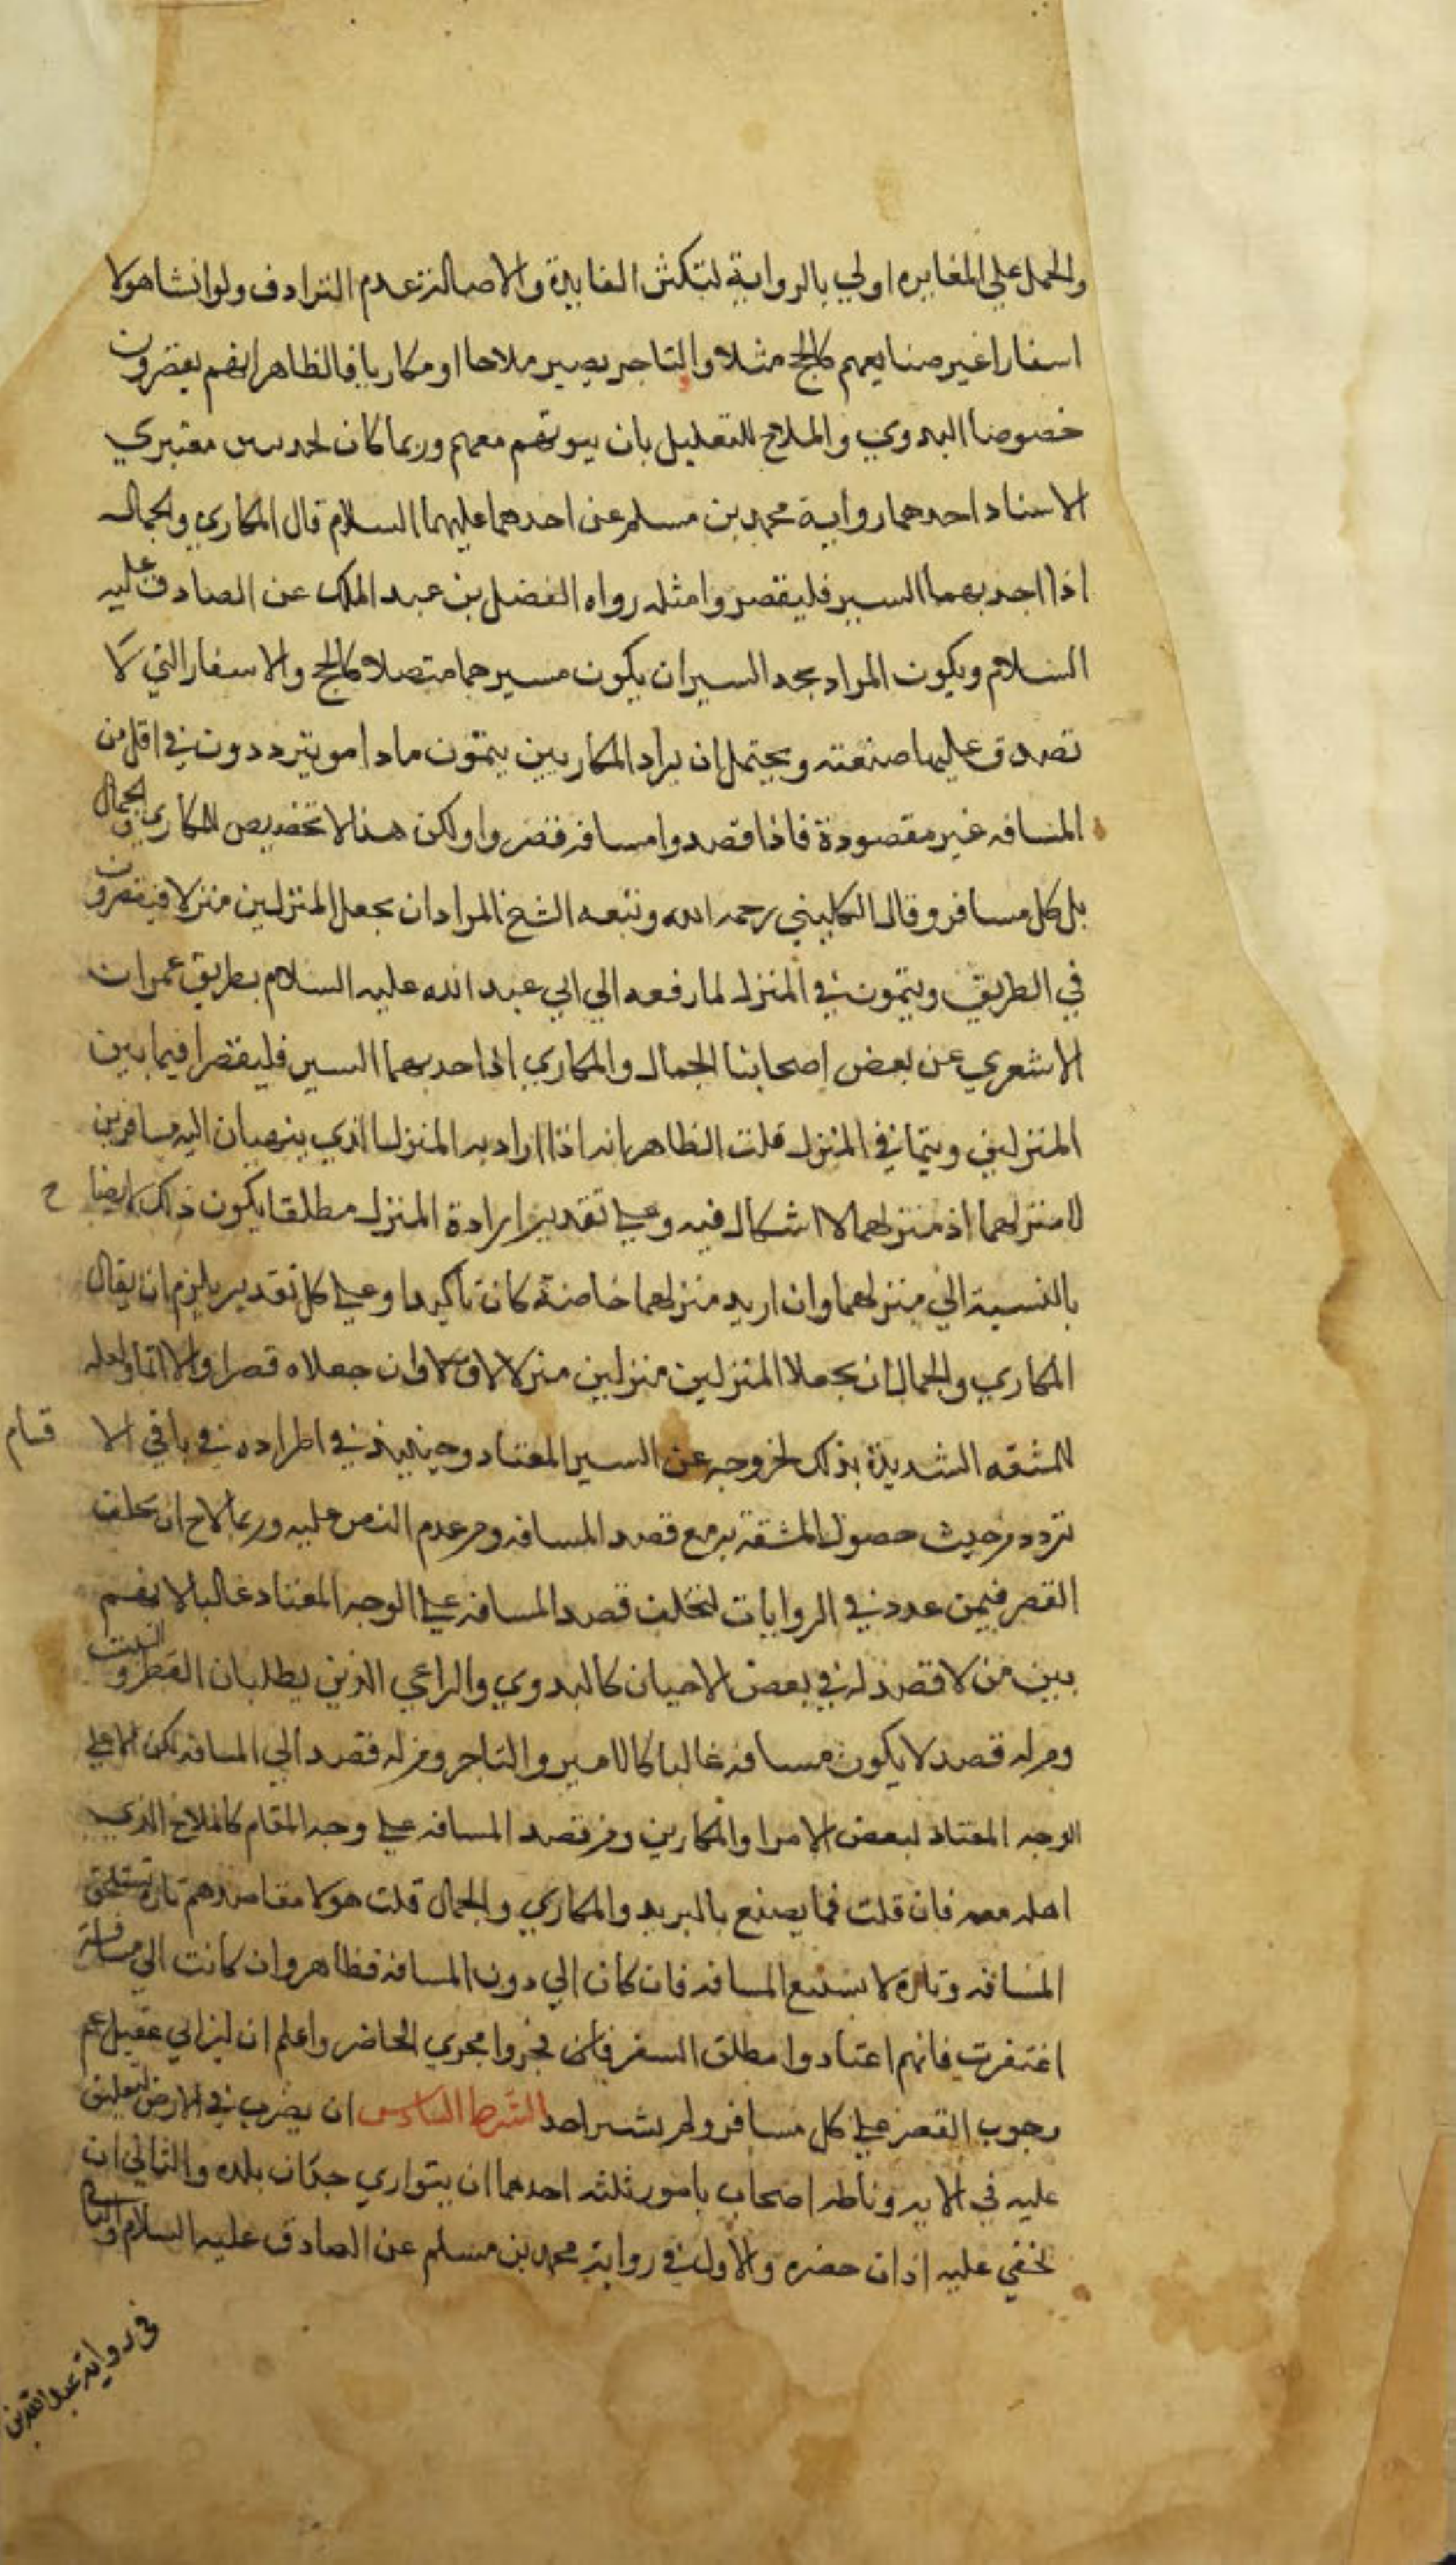 والحمل علي المغايره اولي بالرواية لتكثر الفايدة والاصالة عدم الترادف ولو انشا هولا
اسفارا غير صنايعهم كالحج مثلا والتاجر يصير ملاحا او مكاريا فالظاهر انهم يقصرون
خصوصا البدوي والملاح للتعليل بان بيوتهم معهم وربما كان لحديثين معتبري
الاسناد احدهما رواية محمد بن مسلم عن احدهما عليهما السلام قال المكاري والجمال
اذا اجد بهما السير فليقصروا مثله رواه الفضل بن عبد الملك عن الصادق عليه
السلام ويكون المراد بجد السير ان يكون مسيرهما متصلا كالحج والاسفار التي لا
تصدق عليها صنعته ويحتمل ان يراد المكاريين يتمون ما داموا يترددون في اقل من
المسافه غير مقصودة فاذا قصدوا مسافه قصروا ولكن هذا لا تخصيص للمكاري والجمال
بل كل مسافر وقال الكليني رحمه الله وتبعه الشيخ المراد ان يجعل المنزلين منزلا فيقصرون
في الطريق ويتمون في المنزل لما رفعه الي ابي عبد الله عليه السلام بطريق عمران
الاشعري عن بعض اصحابنا الجمال والمكاري اذا احد بهما السير فليقصرا فيما بين
المنزلين ويتما في المنزل قلت الظاهر انه اذا اراد به المنزل الذي ينتهيان اليه مسافرين
لا منزلهما اذ منزلهما لا اشكال فيه وعلي تقدير ارادة المنزل مطلقا يكون ذلك ايضا ح
بالنسبة الي منزلهما وان اريد منزلهما خاصة كان تاكيدا وعلي كل تقدير يلزم ان يقال
المكاري والجمال ان يجعلا المنزلين منزلين منزلا لاو ان جعلاه قصرا والا اتما ولعله
للمشقه الشديدة بذلك لخروجه عن السير المعتاد وحينيذ في اطراده في باقي الا قسام
تردد من حيث حصول المشقة به مع قصد المسافه ومن عدم النص عليه وربما لاح ان تخلف
القصر فيمن عدد في الروايات لتخلف قصد المسافه علي الوجه المعتاد غالبا لانهم
بين من لا قصد له في بعض الاحيان كالبدوي والراعي الذين يطلبان القطر والنبت
ومن له قصد لا يكون مسافه غالبا كالامير والتاجر ومن له قصد الي المسافه لكن لا علي
الوجه المعتاد لبعض الامرا والمكارين ومن قصد المسافه علي وجه المقام كالملاح الذي
اهله معه فان قلت فما يصنع بالبريد والمكاري والجمال قلت هولا مقاصدهم تارة تستلحق
المسافه وتارة لا يستتبع المسافه فان كان الي دون المسافه فظاهر وان كانت الي مسافه
اغتفرت فانهم اعتادوا مطلق السفر فجروا مجري الحاضر واعلم ان لابن ابي عقيل عم
وجوب القصر علي كل مسافر ولم يستثن احدا الشرط السادس ان يضرب في الارض لتعليق
عليه في الايه وناطه اصحاب بامور ثلثه احدهما ان يتواري جدران بلده والثاني ان
يخفي عليه اذان مصره والاول في رواية محمد بن مسلم عن الصادق عليه السلام والثاني
في رواية عبد الله بن